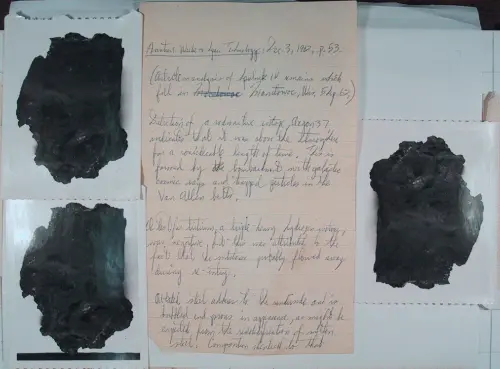 Aviation Week & Space Technology, Dec. 3, 1962, p. 53.
(analysis of Sputnik IV remains which
fell in Manitowoc, Wis., 5 Sep. 62.)
Detection of a radioactive isotope, Argon 37
indicates that it was above the atmosphere
for a considerable length of time. This is
formed by the bombardment with galactic
cosmic rays and trapped particles in the
Van Allen belts.
tests for tritium, a triple heavy hydrogen isotope,
were negative, but this was attributed to the
fact that the substance probably flowed away
during re-entry.
steel adheres to the underside and is
bubbled and porous in appearance, as might be
expected from the resolidification of molten
steel. Composition similar to that